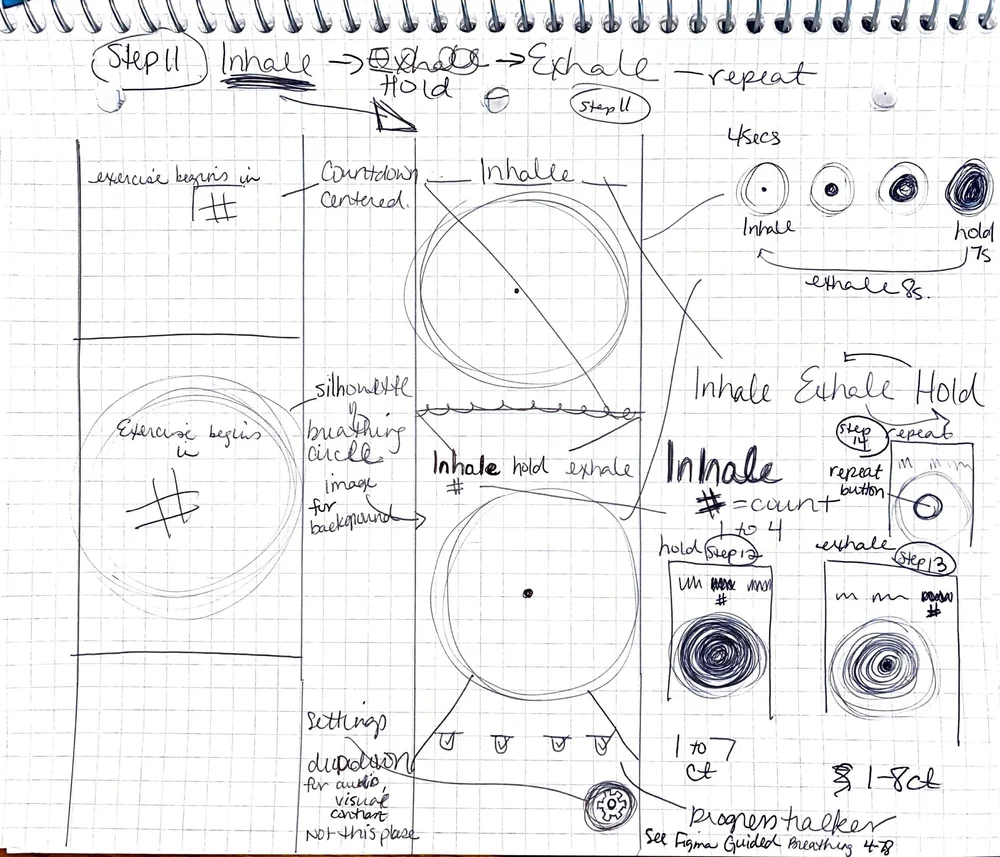 Step 11 Inhale → Exhale → Exhale — repeat
HOLD
Step 11
exercise begins in
#
Countdown
centered.
Inhale
4secs
Inhale
hold
7s
exhale 8s.
Exercise begins
in
#
silhouette
of
breathing
circle
image
for
background
Inhale hold exhale
#
Inhale Exhale Hold
Inhale
# = count
1 to 4
Step 14
repeat
repeat
button
hold Step 12
#
1 to 7
ct
exhale Step 13
#
1-8ct
Settings
dropdown
for audio,
visual
contrast
Not this phase
Progress tracker
See Figma Guided Breathing 4-7-8